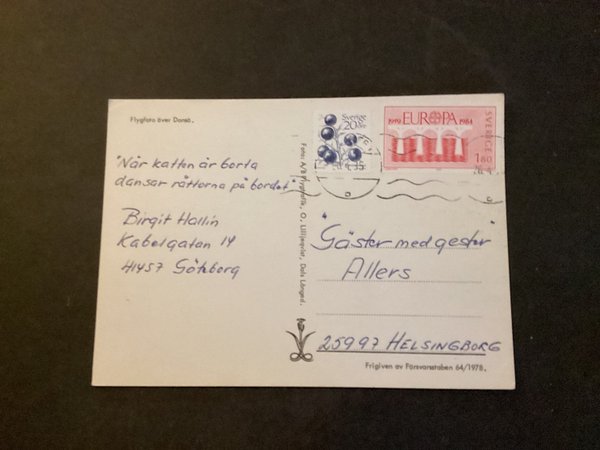 Flygfoto över Dansö.
Sverige
20 öre
1959 EUROPA 1984
SVERIGE
1.80
"När katten är borta
dansar råttorna på bordet"
Birgit Hallin
Kabelgatan 14
41457 Göteborg
"Gäster med gester"
Allers
25997 HELSINGBORG
Frigiven av Försvarsstaben 64/1978.
Foto: A/B Flygtrafik, O. Lilljeqvist, Dals Långed.